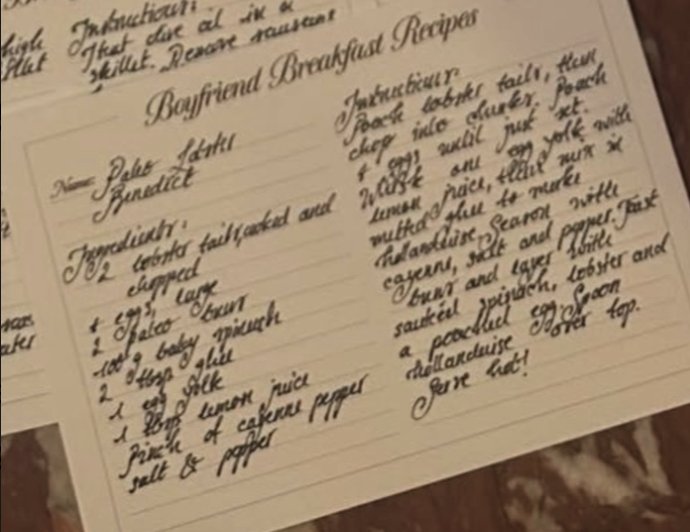 Instructions:
high
That olive oil in a
skillet. Remove
Boyfriend Breakfast Recipes
Name: Paleo Lobster
Benedict
Ingredients:
2 lobster tails, cooked and
chopped
4 eggs, large
2 paleo buns
100 g baby spinach
2 tbsp ghee
1 egg yolk
1 tbsp lemon juice
Pinch of cayenne pepper
salt & pepper
Instructions:
Poach lobster tails, then
chop into chunks. Poach
4 eggs until just set.
Whisk one egg yolk with
lemon juice, then mix in
melted ghee to make
hollandaise. Season with
cayenne, salt and pepper. Toast
buns and layer with
sautéed spinach, lobster and
a poached egg. Spoon
hollandaise over top.
Serve hot!